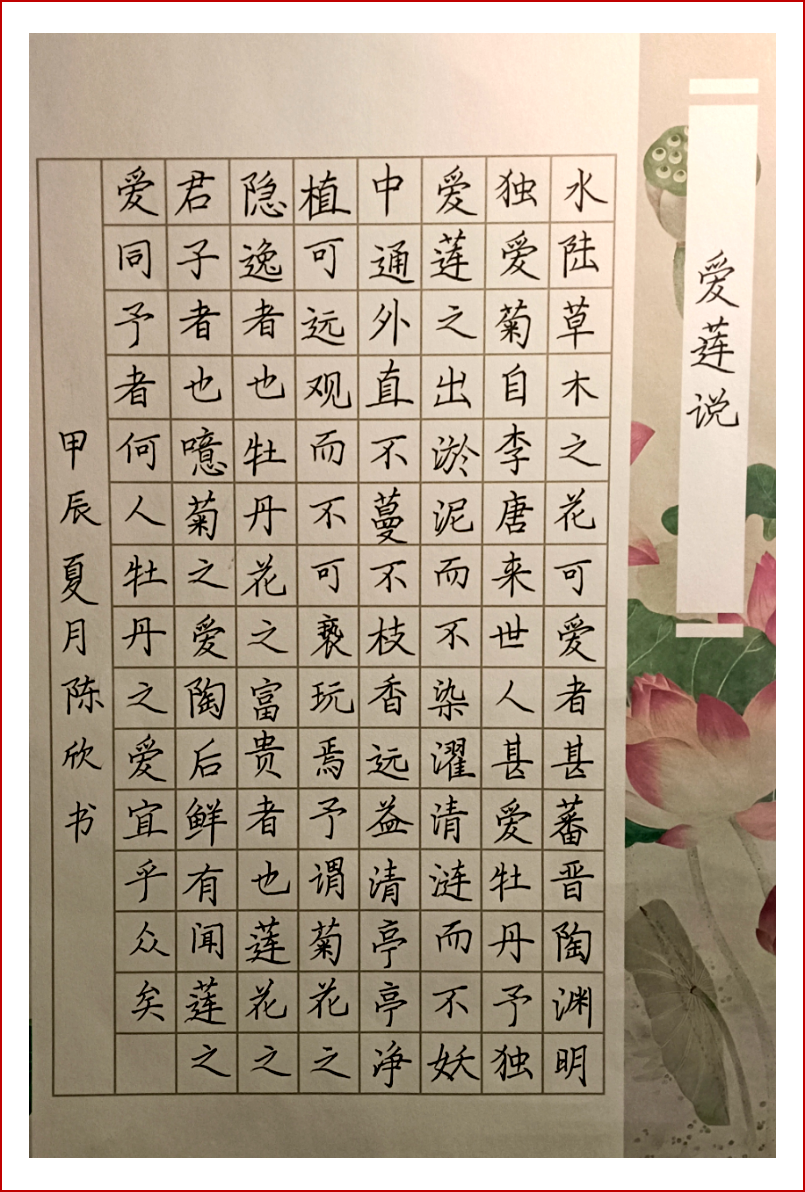 爱莲说
水陆草木之花可爱者甚蕃晋陶渊明
独爱菊自李唐来世人甚爱牡丹予独
爱莲之出淤泥而不染濯清涟而不妖
中通外直不蔓不枝香远益清亭亭净
植可远观而不可亵玩焉予谓菊花之
隐逸者也牡丹花之富贵者也莲花之
君子者也噫菊之爱陶后鲜有闻莲之
爱同予者何人牡丹之爱宜乎众矣
甲辰夏月陈欣书